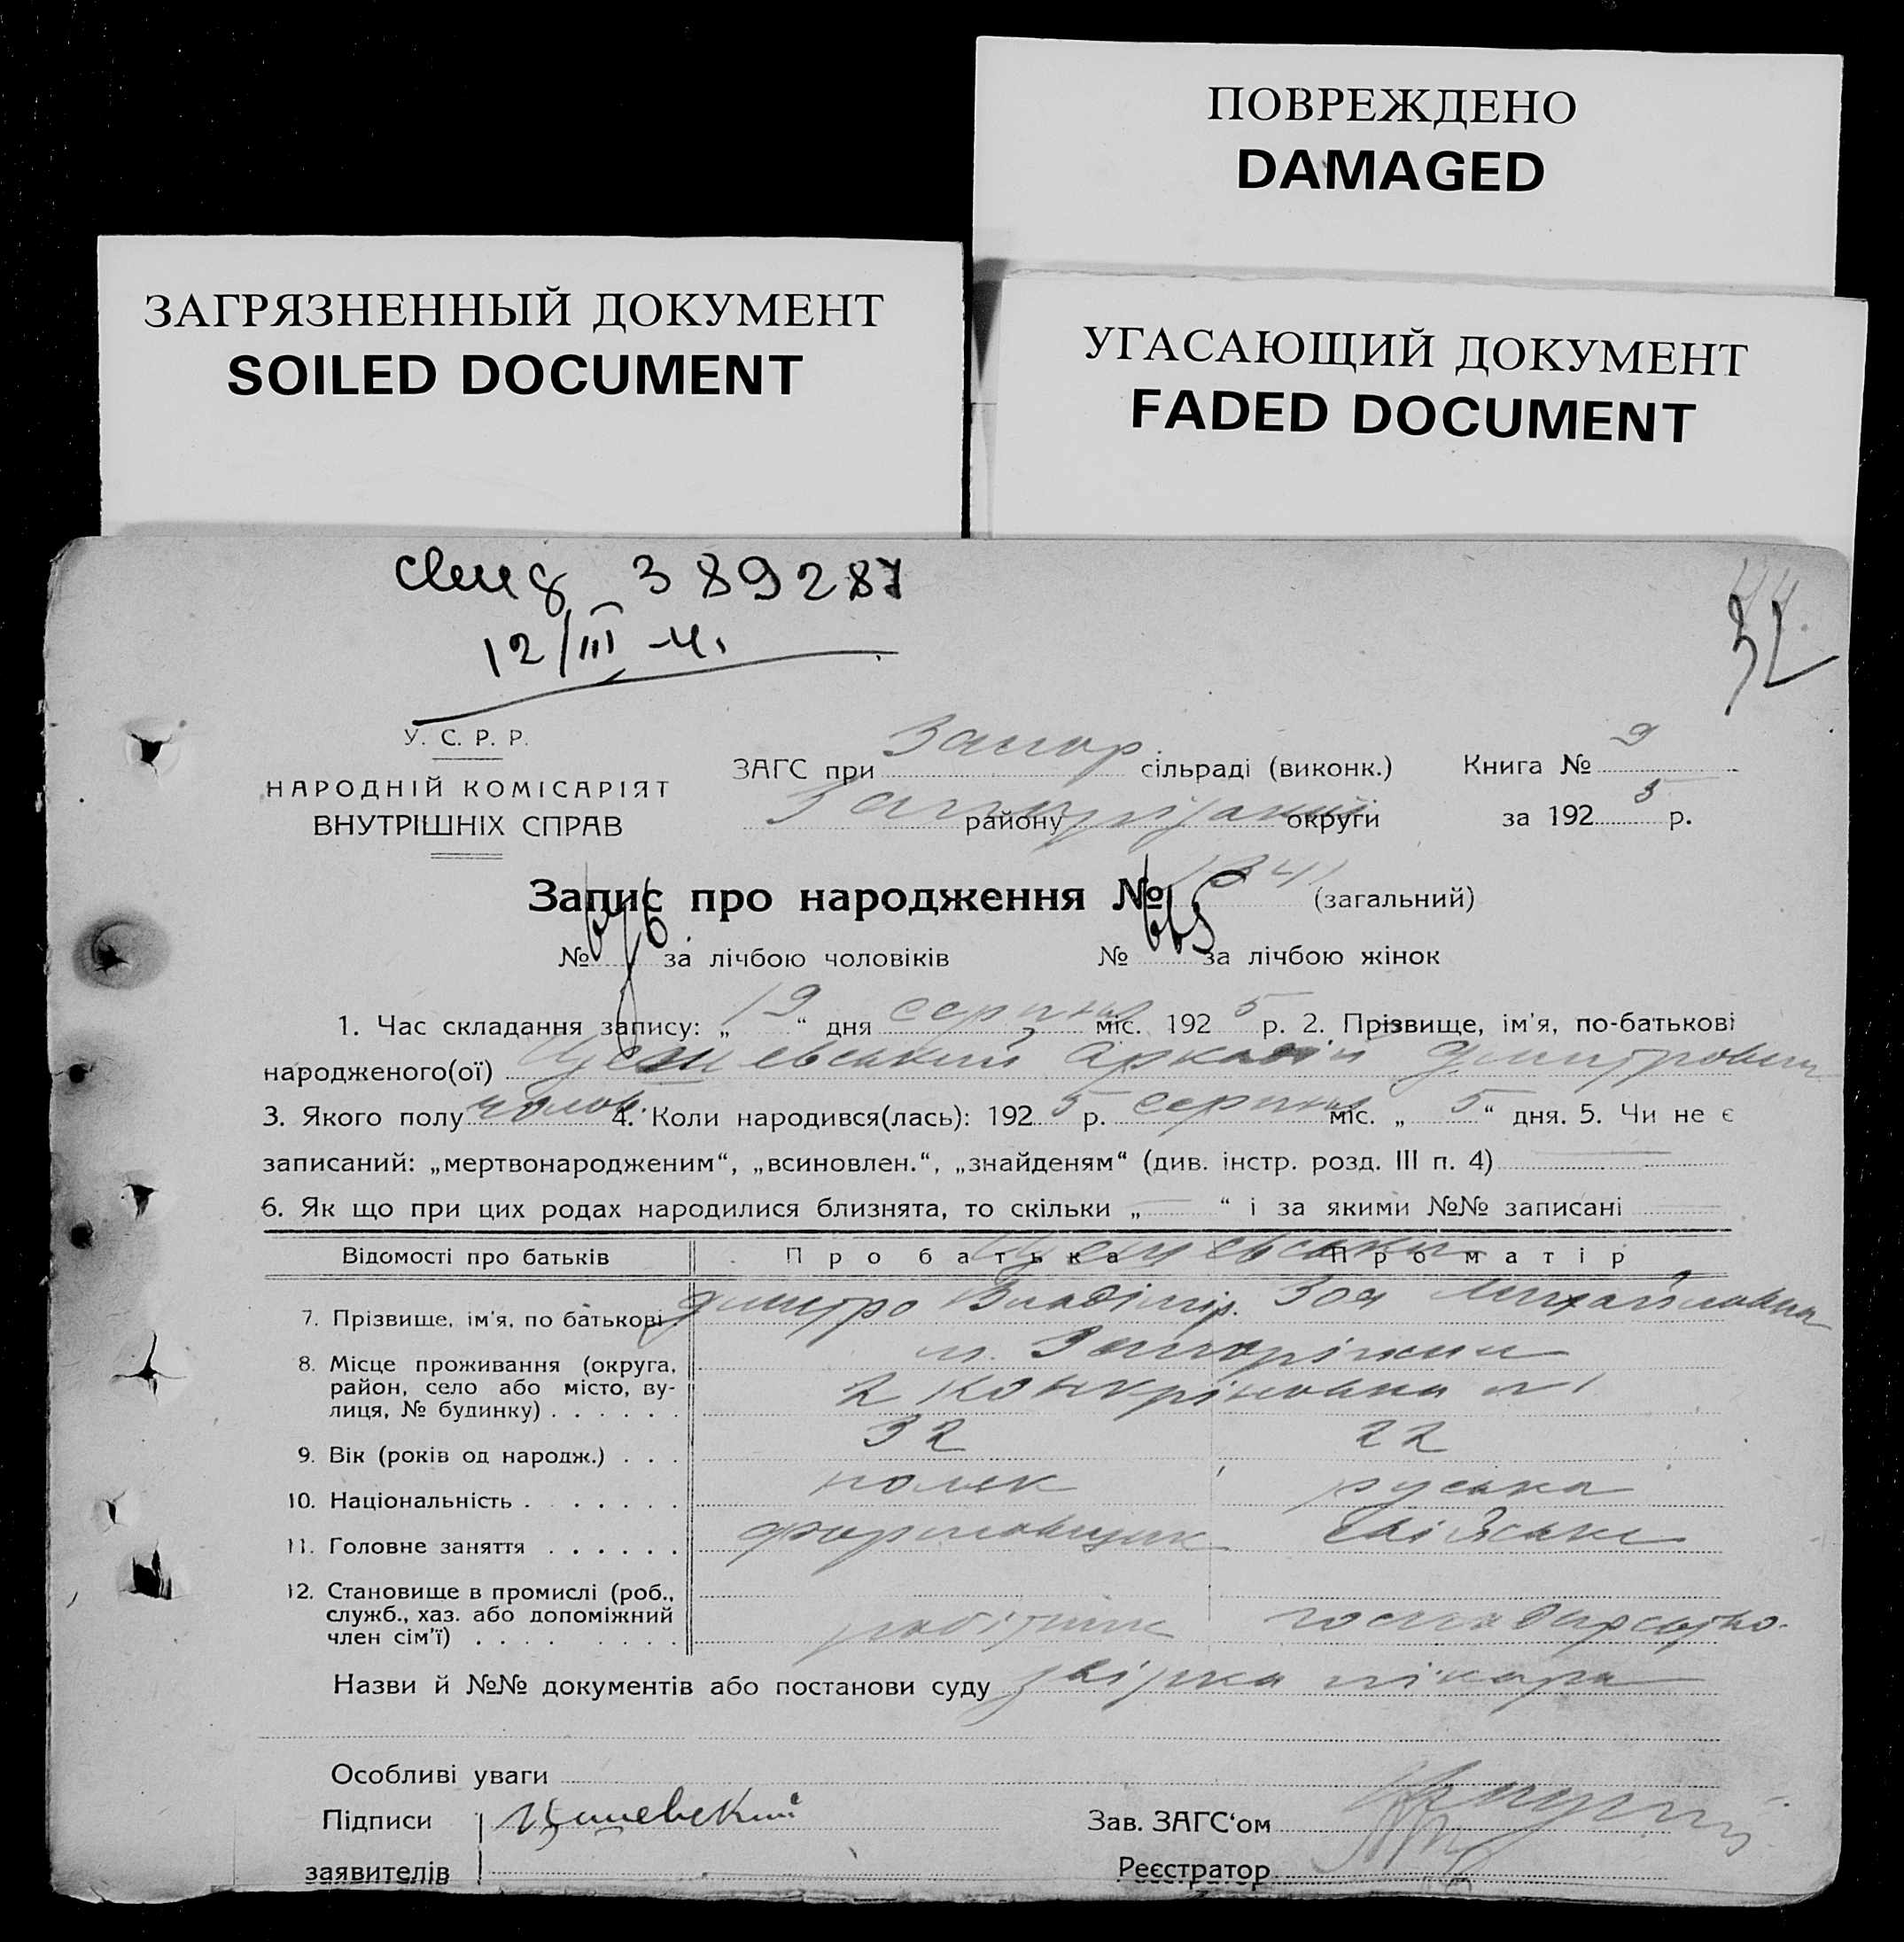 ПОВРЕЖДЕНО
DAMAGED
ЗАГРЯЗНЕННЫЙ ДОКУМЕНТ
SOILED DOCUMENT
УГАСАЮЩИЙ ДОКУМЕНТ
FADED DOCUMENT
389287
12/III
32
У. С. Р. Р.
НАРОДНІЙ КОМІСАРІЯТ
ВНУТРІШНІХ СПРАВ
ЗАГС при Запор сільраді (виконк.) Книга № 9
району округи за 192 5 р.
Запис про народження № 1341 (загальний)
№ 676 за лічбою чоловіків № 665 за лічбою жінок
1. Час складання запису: „ 19 “ дня серпня міс. 192 5 р. 2. Прізвище, ім'я, по-батькові
народженого(ої) Аркадій Дмитрович
3. Якого полу чолов. 4. Коли народився(лась): 192 5 р. серпня міс. „ 5 “ дня. 5. Чи не є
записаний: „мертвонародженим“, „всиновлен.“, „знайденям“ (див. інстр. розд. III п. 4)
6. Як що при цих родах народилися близнята, то скільки „ “ і за якими №№ записані
Відомості про батьків Про батька Про матір
7. Прізвище, ім'я, по батькові Дмитро Владімір. Зоя Михайловна
8. Місце проживання (округа, м. Запоріжжя
район, село або місто, ву- 2
лиця, № будинку)
9. Вік (років од народж.) 32 22
10. Національність поляк руська
11. Головне заняття формовщик
12. Становище в промислі (роб.,
служб., хаз. або допоміжний робітник
член сім'ї)
Назви й №№ документів або постанови суду звірка лікаря
Особливі уваги
Підписи Зав. ЗАГС‘ом
заявителів Реєстратор